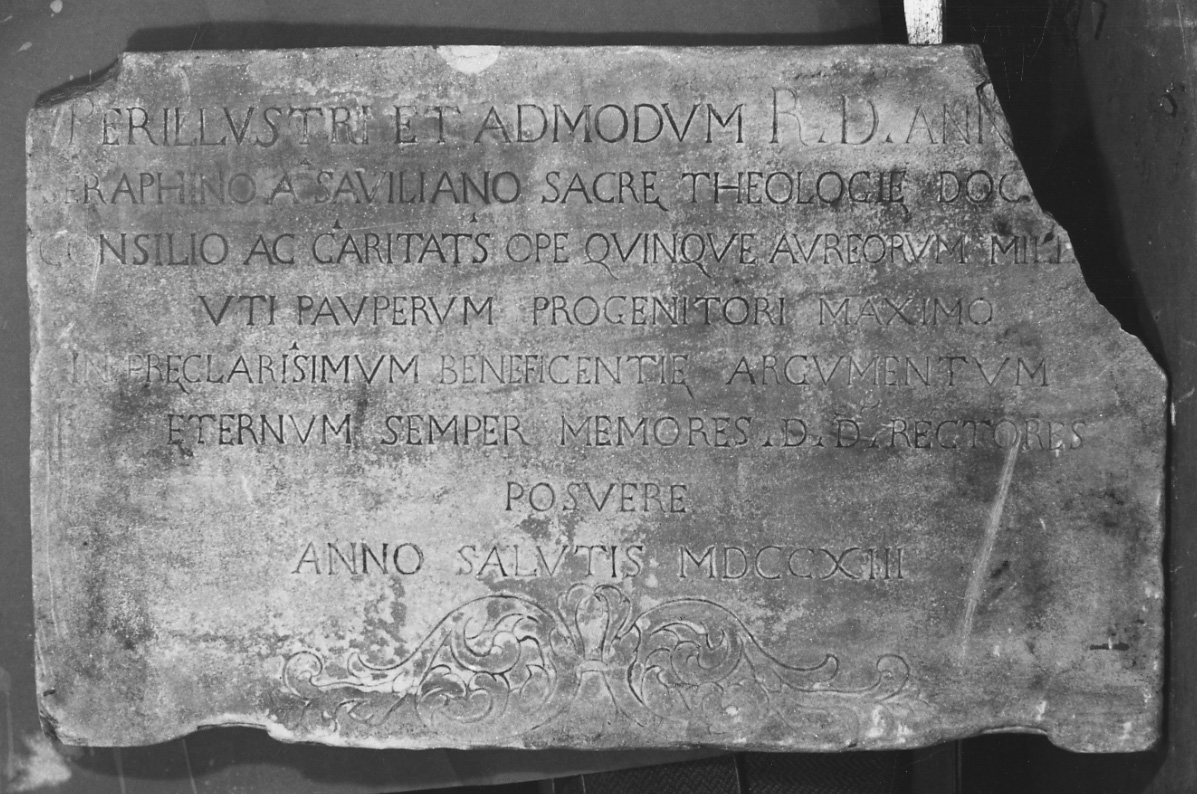 PERILLVSTRI ET ADMODVM R. D. ANN
SERAPHINO A SAVILIANO SACRĘ THEOLOGIĘ DOC
CONSILIO AC CARITATS OPE QVINQVE AVREORVM MILL
VTI PAVPERVM PROGENITORI MAXIMO
IN PRĘCLARISIMVM BENEFICENTIĘ ARGVMENTVM
ĘTERNVM SEMPER MEMORES .D. D. RECTORES
POSVERE
ANNO SALVTIS MDCCXIII